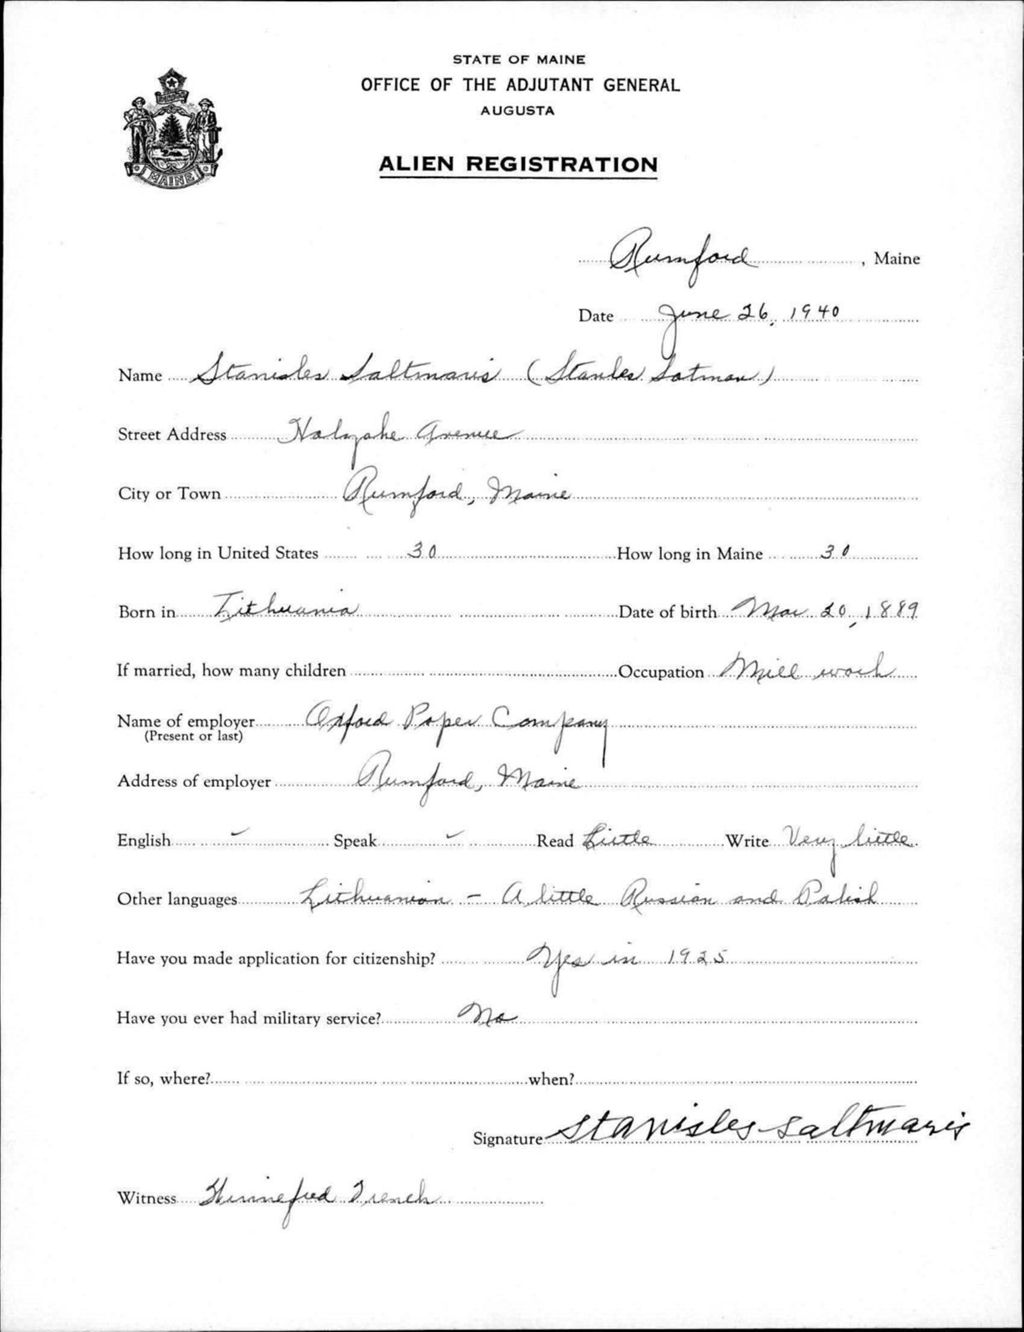 STATE OF MAINE
OFFICE OF THE ADJUTANT GENERAL
AUGUSTA
ALIEN REGISTRATION
MAINE
Rumford, Maine
Date June 26, 1940
Name Stanisles Saltmaris (Stanles Satman)
Street Address Avenue
City or Town Rumford, Maine
How long in United States 30 How long in Maine 30
Born in Lithuania Date of birth Mar 20, 1889
If married, how many children Occupation Mill work
Name of employer Oxford Paper Company
(Present or last)
Address of employer Rumford, Maine
English ✓ Speak ✓ Read Little Write Very little
Other languages Lithuanian - A little Russian and Polish
Have you made application for citizenship? Yes in 1925
Have you ever had military service? No
If so, where? when?
Signature Stanisles Saltmaris
Witness Winnefred French